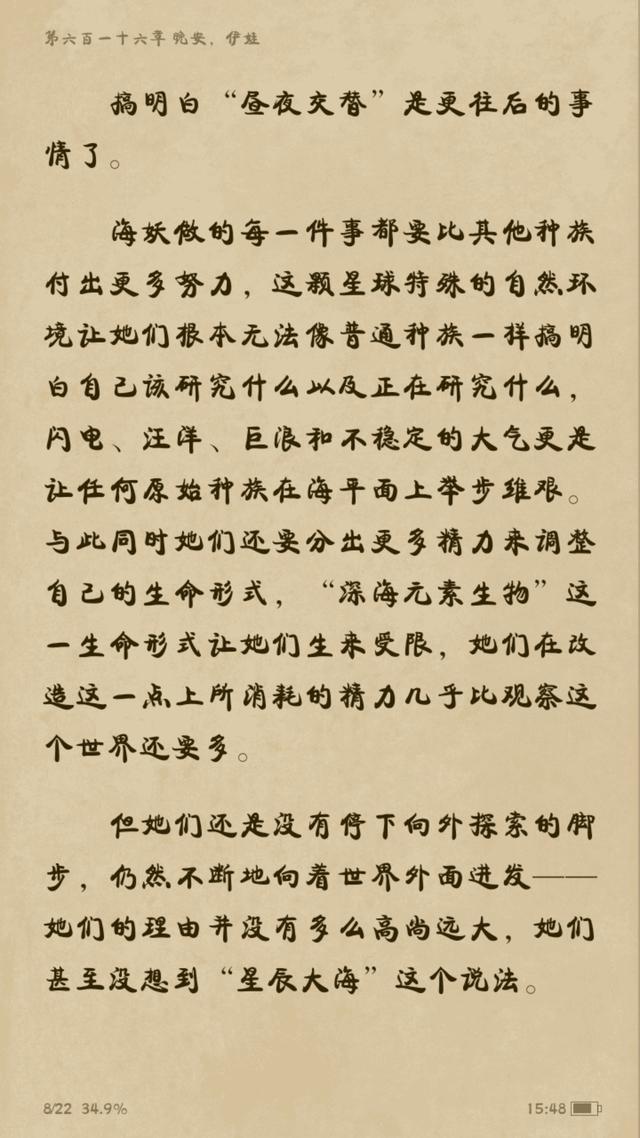 第六百一十六章 晚安，伊娃
搞明白“昼夜交替”是更往后的事
情了。
海妖做的每一件事都要比其他种族
付出更多努力，这颗星球特殊的自然环
境让她们根本无法像普通种族一样搞明
白自己该研究什么以及正在研究什么，
闪电、汪洋、巨浪和不稳定的大气更是
让任何原始种族在海平面上举步维艰。
与此同时她们还要分出更多精力来调整
自己的生命形式，“深海元素生物”这
一生命形式让她们生来受限，她们在改
造这一点上所消耗的精力几乎比观察这
个世界还要多。
但她们还是没有停下向外探索的脚
步，仍然不断地向着世界外面进发——
她们的理由并没有多么高尚远大，她们
甚至没想到“星辰大海”这个说法。
8/22 34.9%
15:48